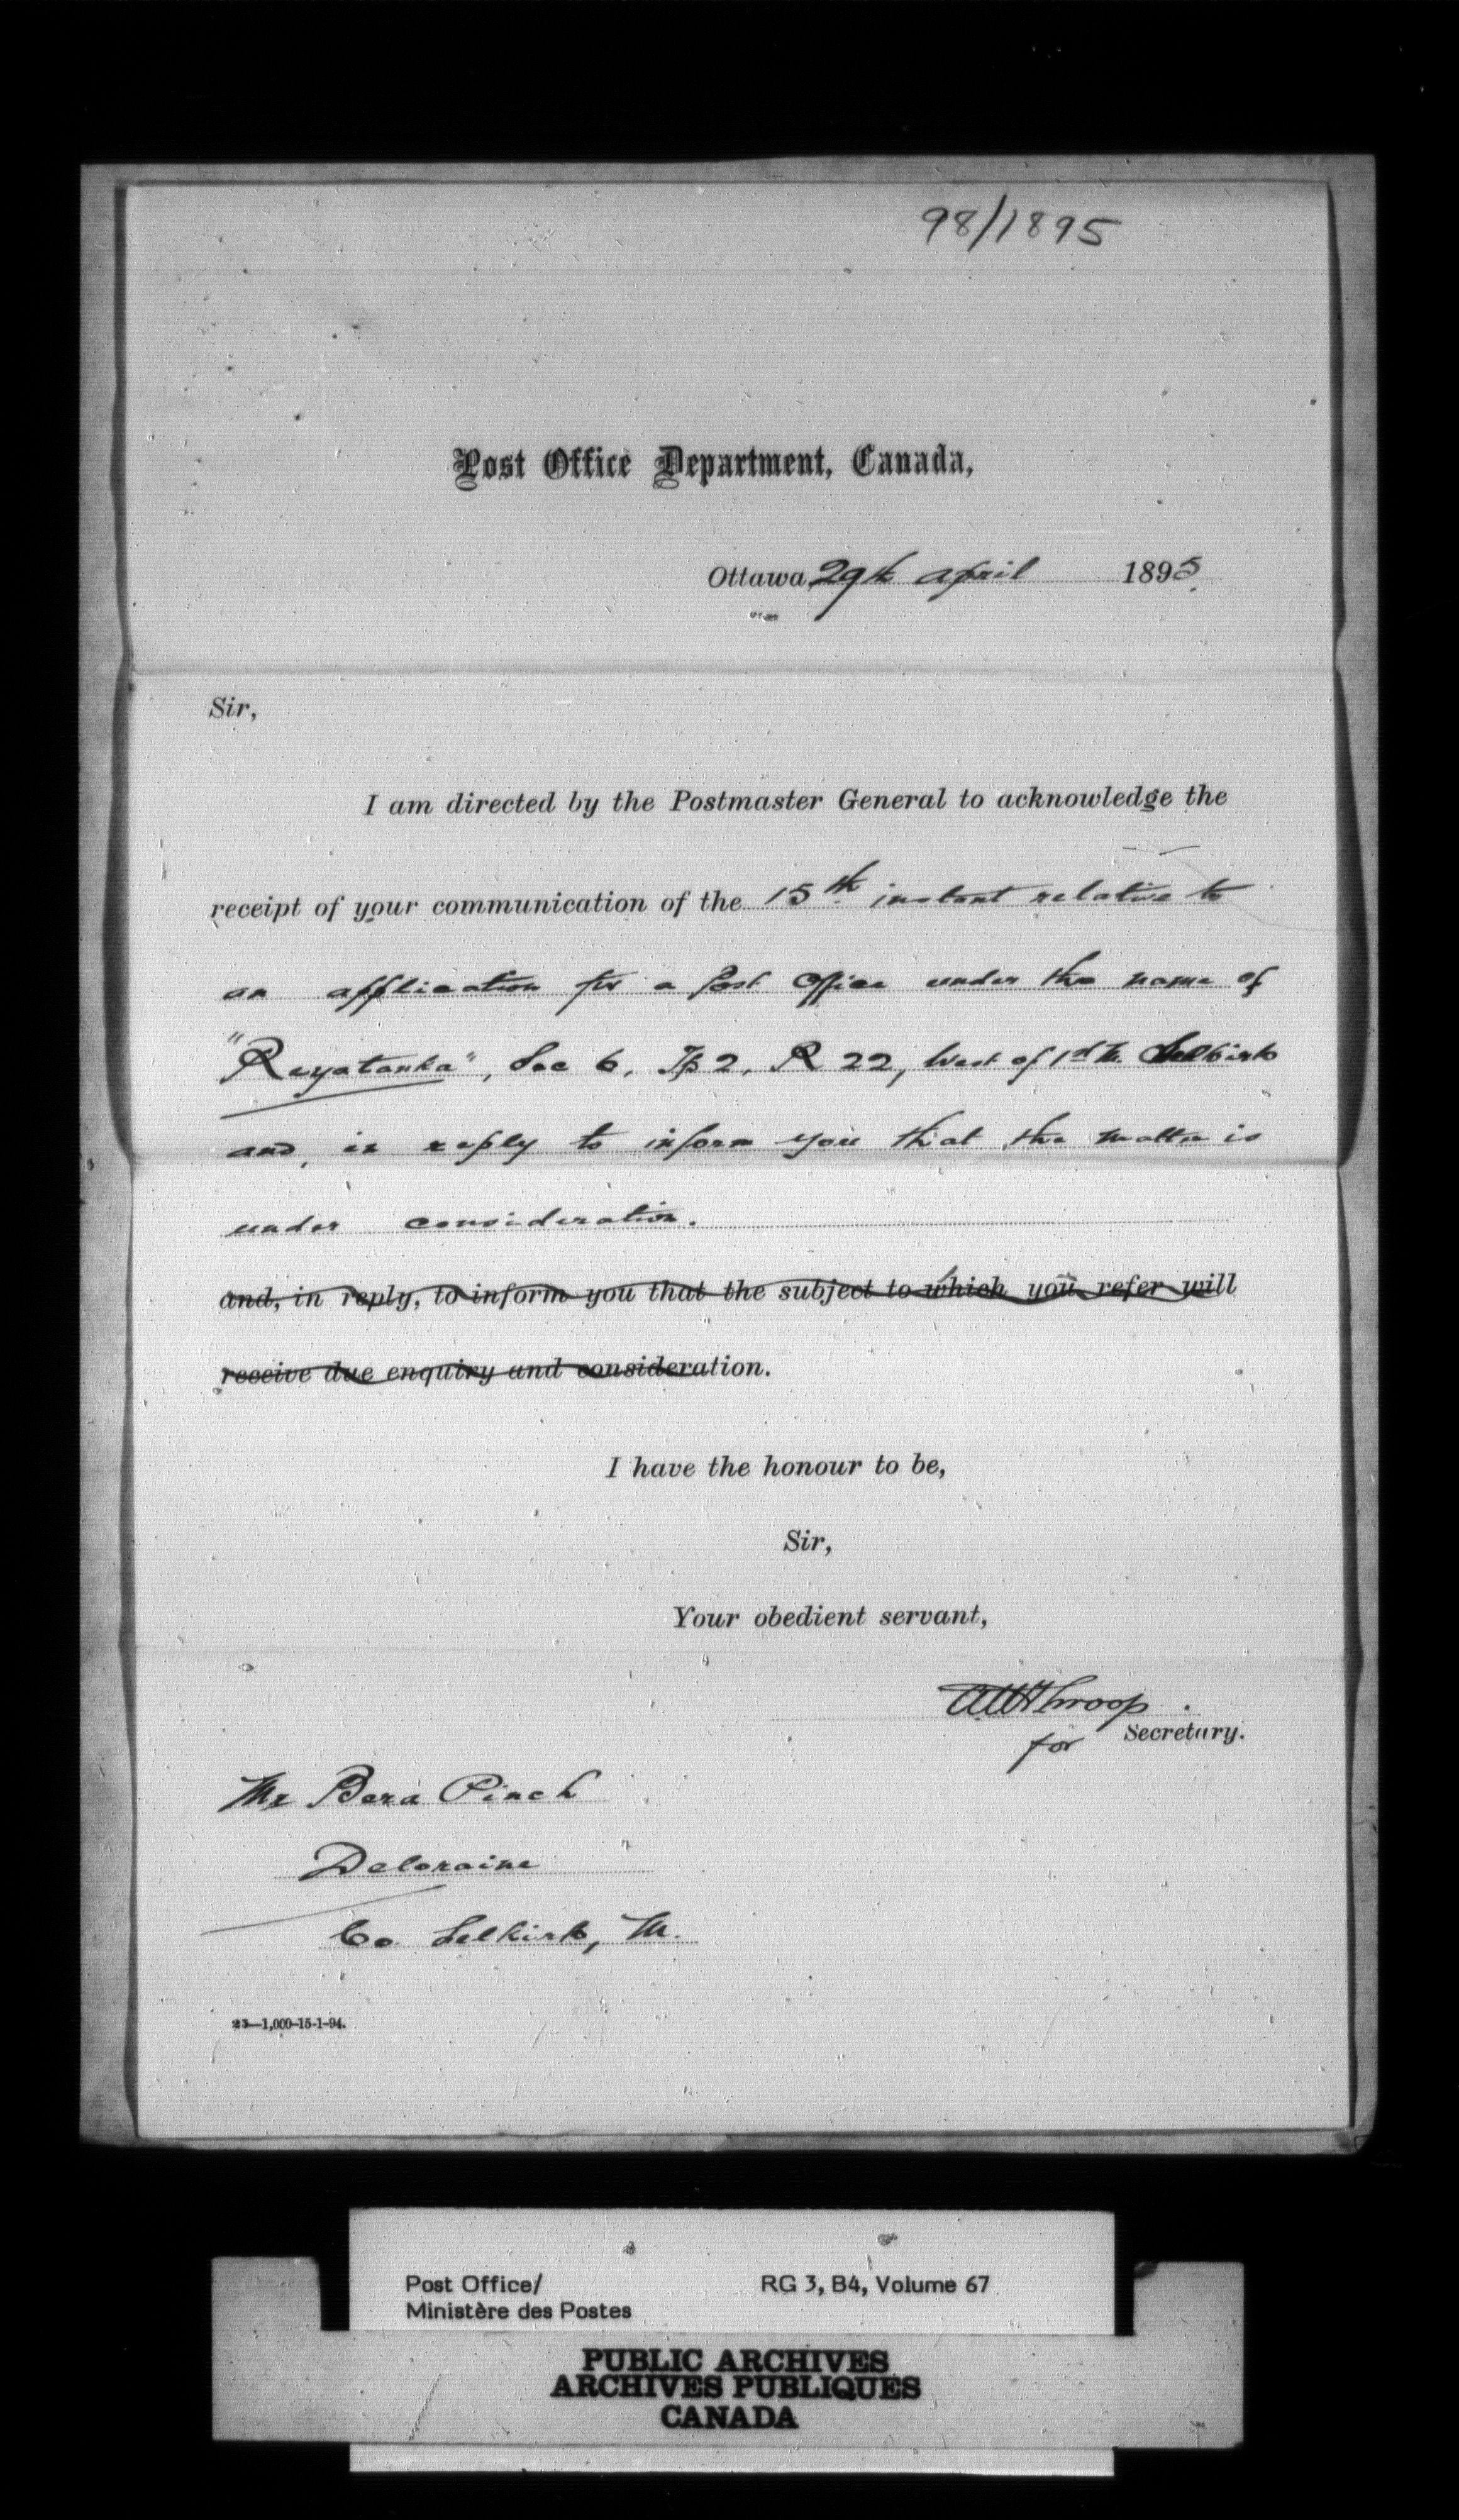 98/1895
Post Office Department, Canada,
Ottawa 29th april 1895
Sir,
I am directed by the Postmaster General to acknowledge the
receipt of your communication of the 15th instant relative to
an application for a Post Office under the name of
"Reyatanka", Sec 6, Tp 2, R 22, West of 1st M. Selkirk
and, in reply to inform you that the matter is
under consideration.
and, in reply, to inform you that the subject to which you refer will
receive due enquiry and consideration.
I have the honour to be,
Sir,
Your obedient servant,
Throop
for Secretary.
Mr Pinch
Deloraine
Co. Selkirk, M.
23—1,000-15-1-94.
Post Office/ RG 3, B4, Volume 67
Ministère des Postes
PUBLIC ARCHIVES
ARCHIVES PUBLIQUES
CANADA